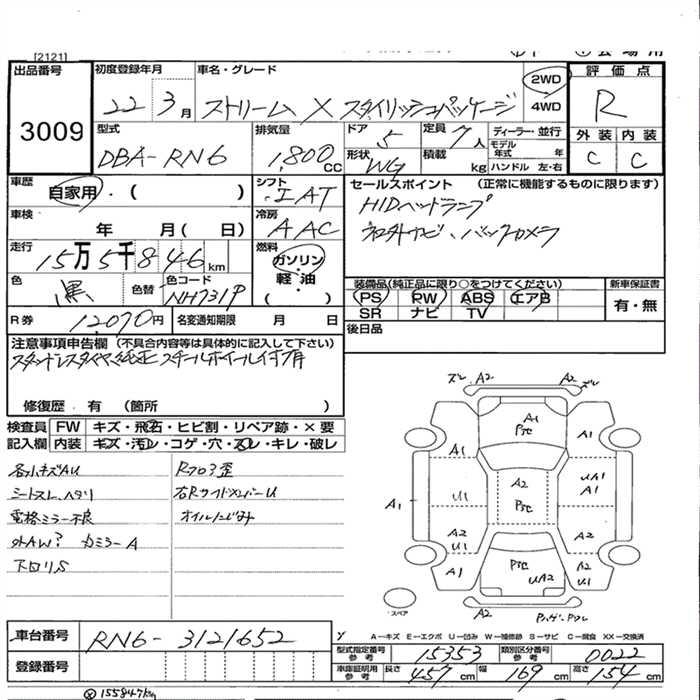 [2121]
出品番号 初度登録年月 車名・グレード 2WD 4WD 評価点
3009 22 3月 ストリーム X スタイリッシュパッケージ R
型式 排気量 ドア 定員 ディーラー・並行 外装 内装
DBA-RN6 1,800cc 5 7人 モデル年式 年 C C
形状 WG 積載 kg ハンドル 左・右
車歴 自家用・( ) シフト IAT セールスポイント (正常に機能するものに限ります)
車検 年 月(日) 冷房 AAC HIDヘッドランプ
社外ナビ、バックカメラ
走行 15万5千846km 燃料 ガソリン・軽油・( )
色 黒 色替 色コード NH731P
装備品(純正品に限り○をつけてください) 新車保証書
PS RW ABS エアB 有・無
SR ナビ TV
R券 12,070円 名変通知期限 月 日 後日品
注意事項申告欄 (不具合内容等は具体的に記入して下さい)
スタッドレスタイヤ純正スチールホイール付有
修復歴・有 (箇所 )
検査員 FW キズ・飛石・ヒビ割・リペア跡・×要
記入欄 内装 キズ・汚れ・コゲ・穴・スレ・キレ・破レ
各小キズAU Rフロア歪
シートスレ、ヘタリ 右RサイドメンバーU
電格ミラー不良 オイルにじみ
外AW? カミラーA
下回りS
ズレ A2 A2 ズレ
A1
A1 Pツヒ A1
A2 UA1
A1 U1 Pツヒ A1
A2 A2
U1 U1
A1 Pツヒ UA2 A1
スペア A2
車台番号 RN6-3121652
A-キズ E-エクボ U-凹み W-補修跡 S-サビ C-腐食 XX-交換済
登録番号 型式指定番号参考 15353 類別区分番号参考 0022
車庫証明用参考 長さ 457cm 幅 169cm 高さ 154cm
155847kg